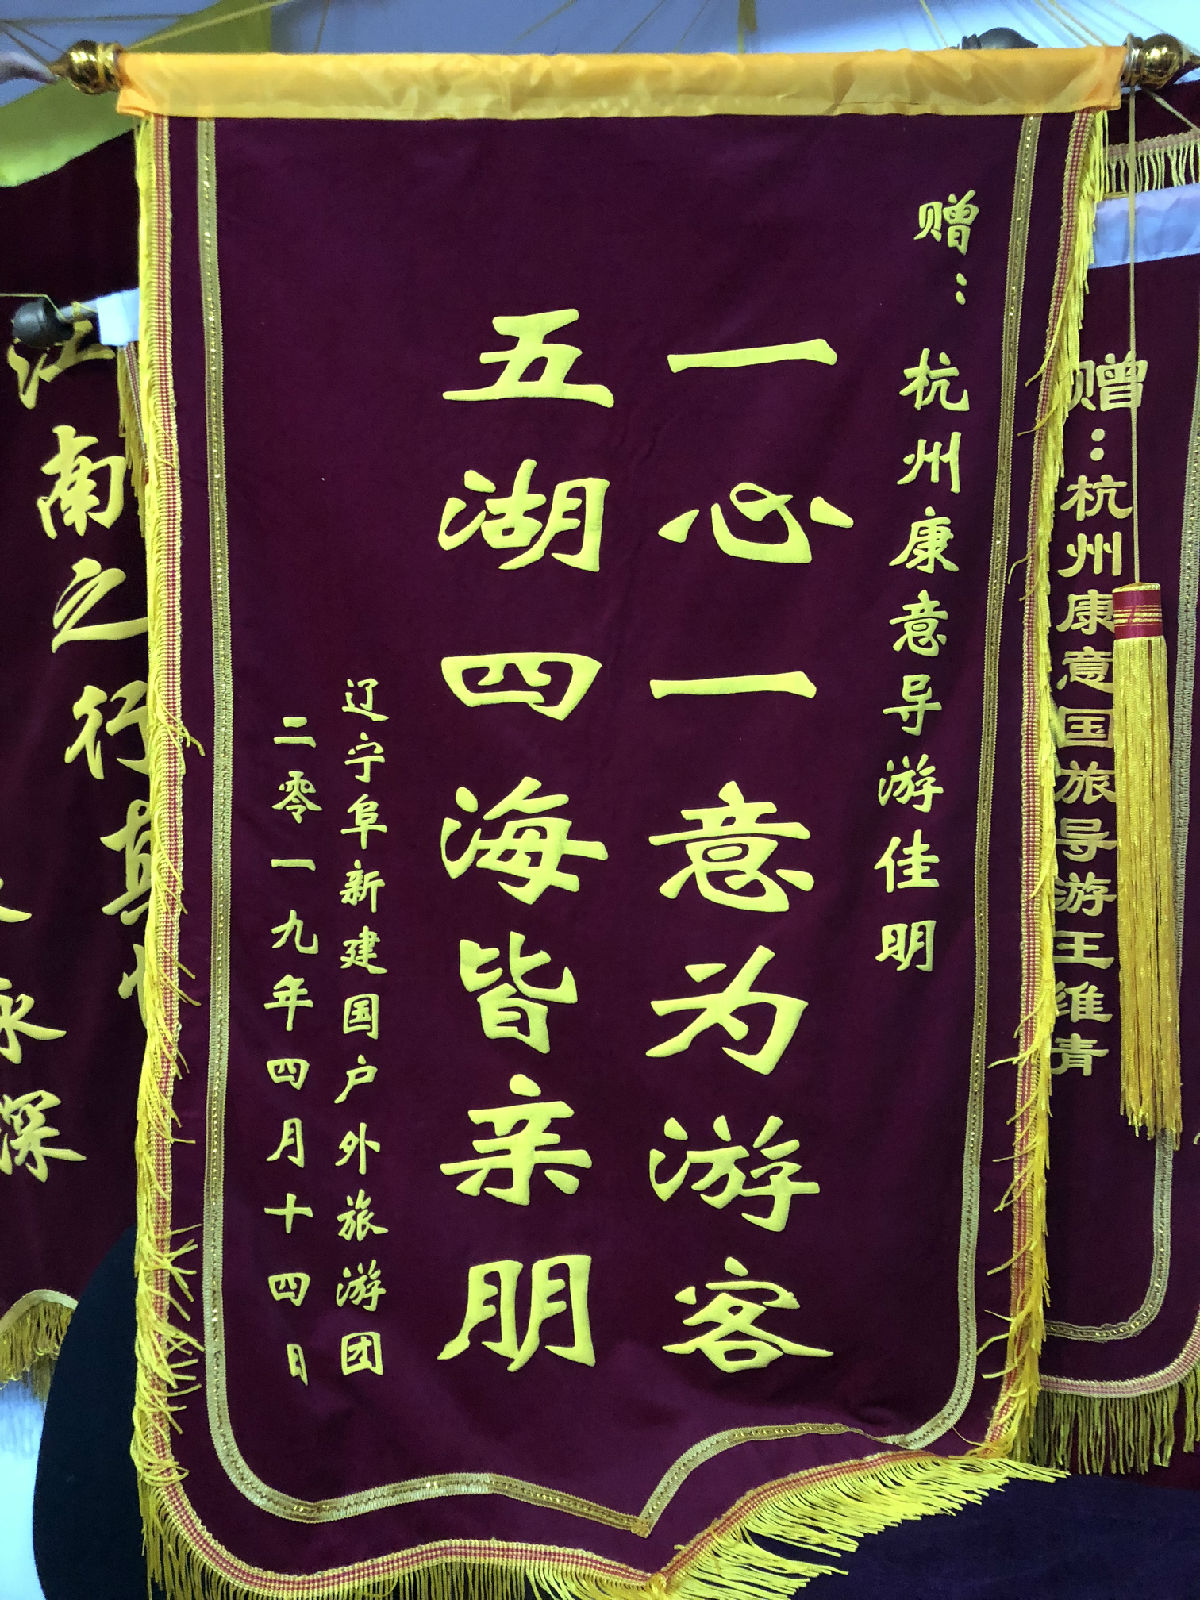 赠：杭州康意导游佳明
一心一意为游客
五湖四海皆亲朋
辽宁阜新建国户外旅游团
二零一九年四月十四日
赠：杭州康意国旅导游王维青
江南之行真情
永深